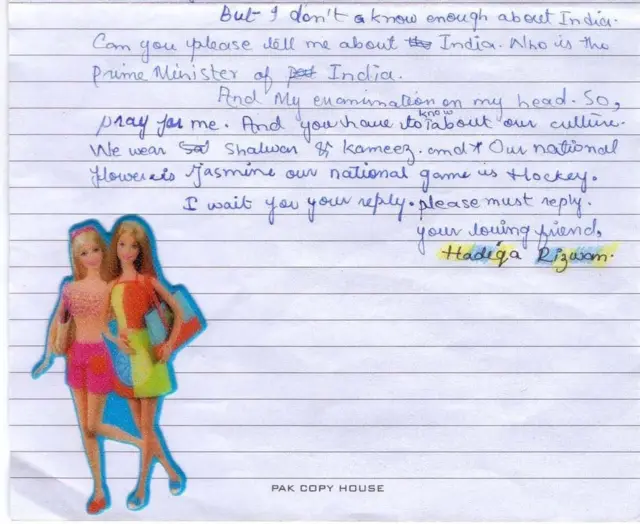 But I don't know enough about India.
Can you please tell me about India. Who is the
Prime Minister of India.
And My examination on my head. So,
pray for me. And you have to know about our culture.
We wear Shalwar & Kameez. and Our national
flower is Jasmine our national game is Hockey.
I wait you your reply. please must reply.
your loving friend,
Hadiqa Rizwan.
PAK COPY HOUSE